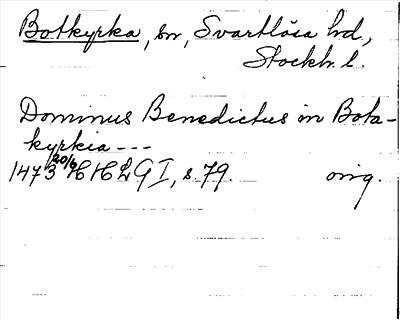 Botkyrka, sn, Svartlösa hd.,
Stockh. l.
Dominus Benedictus in Bota-
kyrkia ---
1473 20/6 HH I, s. 79. orig.